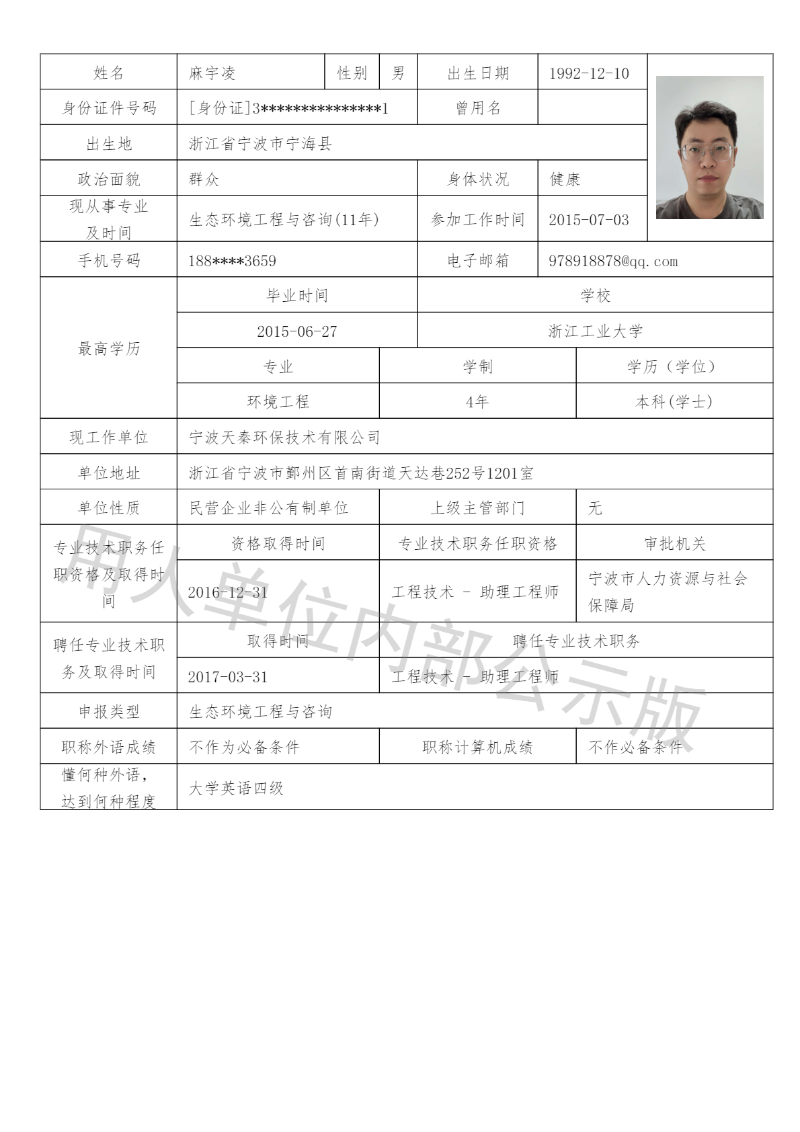 姓名 麻宇凌 性别 男 出生日期 1992-12-10
身份证件号码 [身份证]3***************1 曾用名
出生地 浙江省宁波市宁海县
政治面貌 群众 身体状况 健康
现从事专业
及时间 生态环境工程与咨询(11年) 参加工作时间 2015-07-03
手机号码 188****3659 电子邮箱 978918878@qq.com
最高学历
毕业时间 学校
2015-06-27 浙江工业大学
专业 学制 学历（学位）
环境工程 4年 本科(学士)
现工作单位 宁波天泰环保技术有限公司
单位地址 浙江省宁波市鄞州区首南街道天达巷252号1201室
单位性质 民营企业非公有制单位 上级主管部门 无
专业技术职务任
职资格及取得时
间
资格取得时间 专业技术职务任职资格 审批机关
2016-12-31 工程技术 - 助理工程师 宁波市人力资源与社会
保障局
聘任专业技术职
务及取得时间
取得时间 聘任专业技术职务
2017-03-31 工程技术 - 助理工程师
申报类型 生态环境工程与咨询
职称外语成绩 不作为必备条件 职称计算机成绩 不作必备条件
懂何种外语，
达到何种程度 大学英语四级
用人单位内部公示版